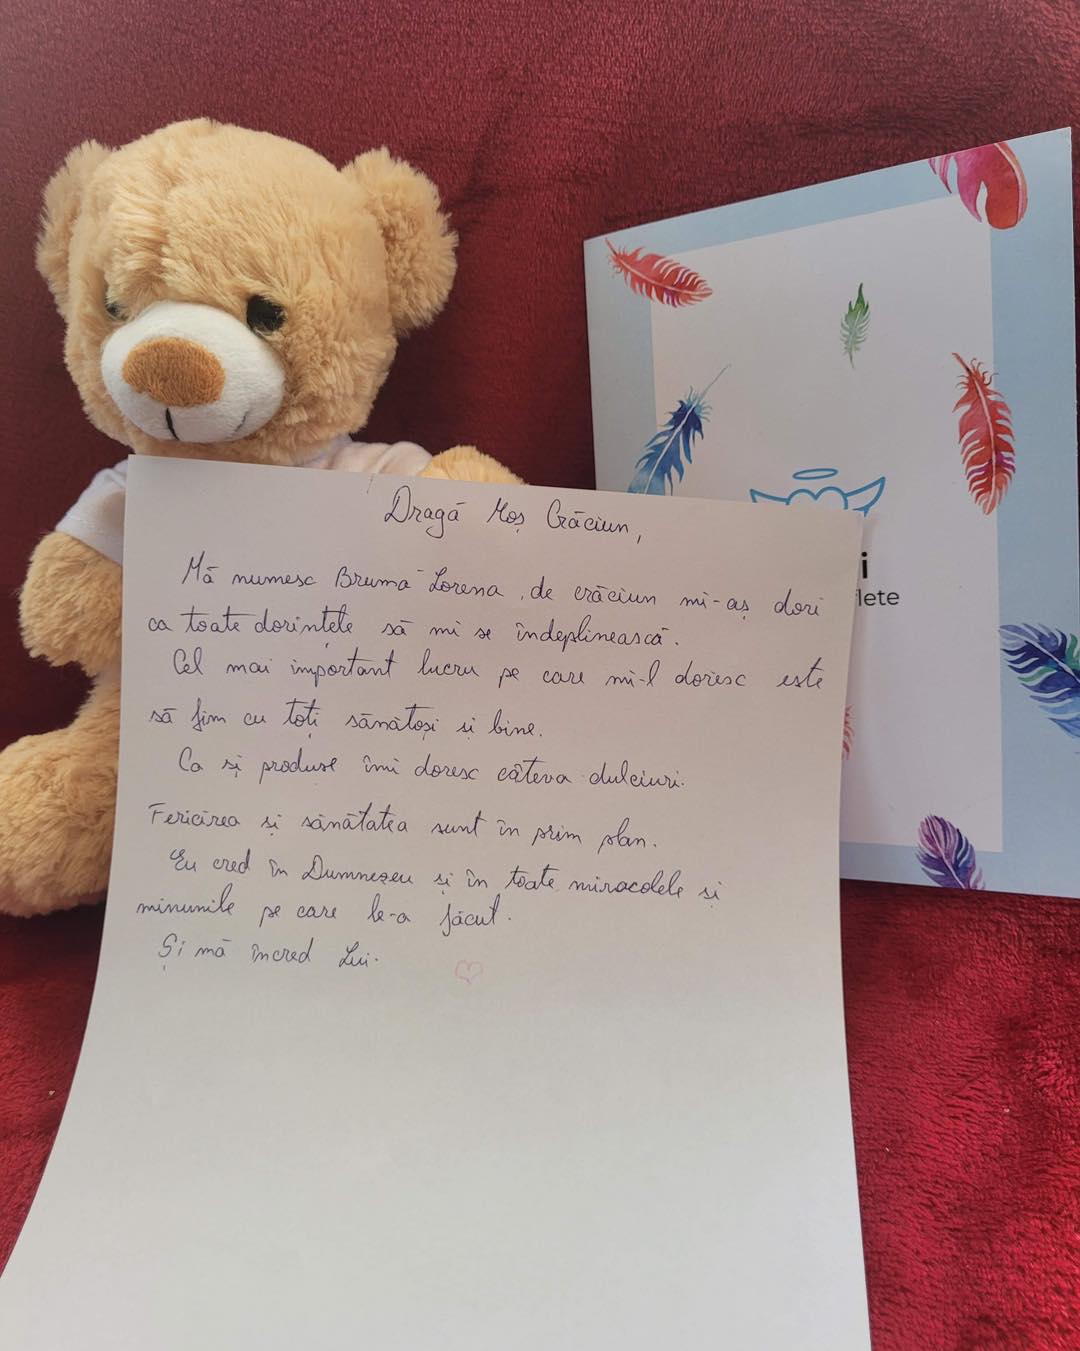 Dragă Moș Crăciun,
Mă numesc Bruma Lorena, de crăciun mi-aș dori
ca toate dorințele să mi se îndeplinească.
Cel mai important lucru pe care mi-l doresc este
să fim cu toți sănătoși și bine.
Ca și produse îmi doresc câteva dulciuri.
Fericirea și sănătatea sunt în prim plan.
Eu cred în Dumnezeu și în toate miracolele și
minunile pe care le-a făcut.
Și mă încred Lui.
i
flete